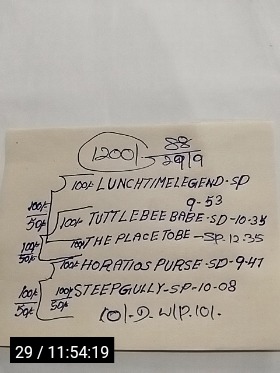 1200/- 88
29/9
100/- LUNCHTIMELEGEND-SP
9-53
100/- 50/- 100/- TUTTLEBEE BABE-SD-10-35
100/- 50/- 100/- THE PLACETOBE-SP-12.35
100/- HORATIOS PURSE-SD-9-47
100/- 50/- 100/- 50/- STEEPGULLY-SP-10-08
10/- D- W/P. 10/-
29 / 11:54:19